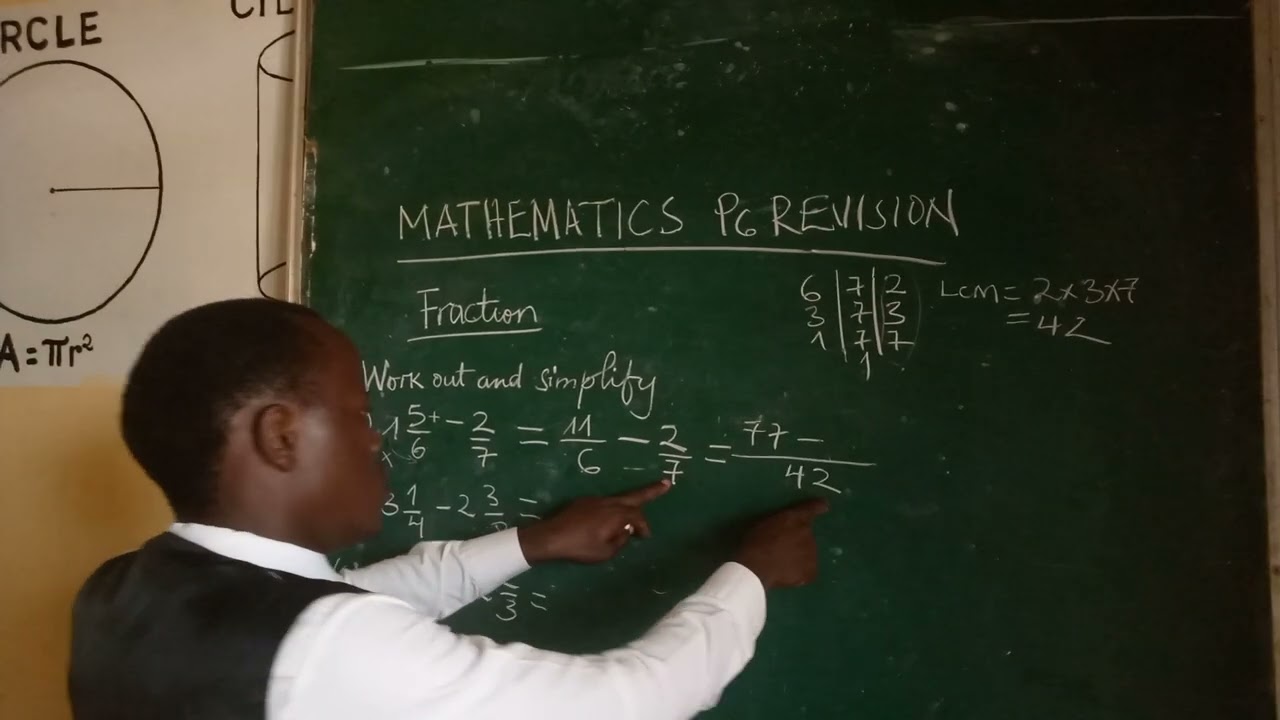 RCLE
CIL
A = πr²
MATHEMATICS P6 REVISION
Fraction
6 | 7 | 2
3 | 7 | 3
1 | 7 | 7
1
LCM = 2×3×7
= 42
Work out and simplify
1 5/6 - 2/7 = 11/6 - 2/7 = 77 - /42
3 1/4 - 2 3/ =
/3 =